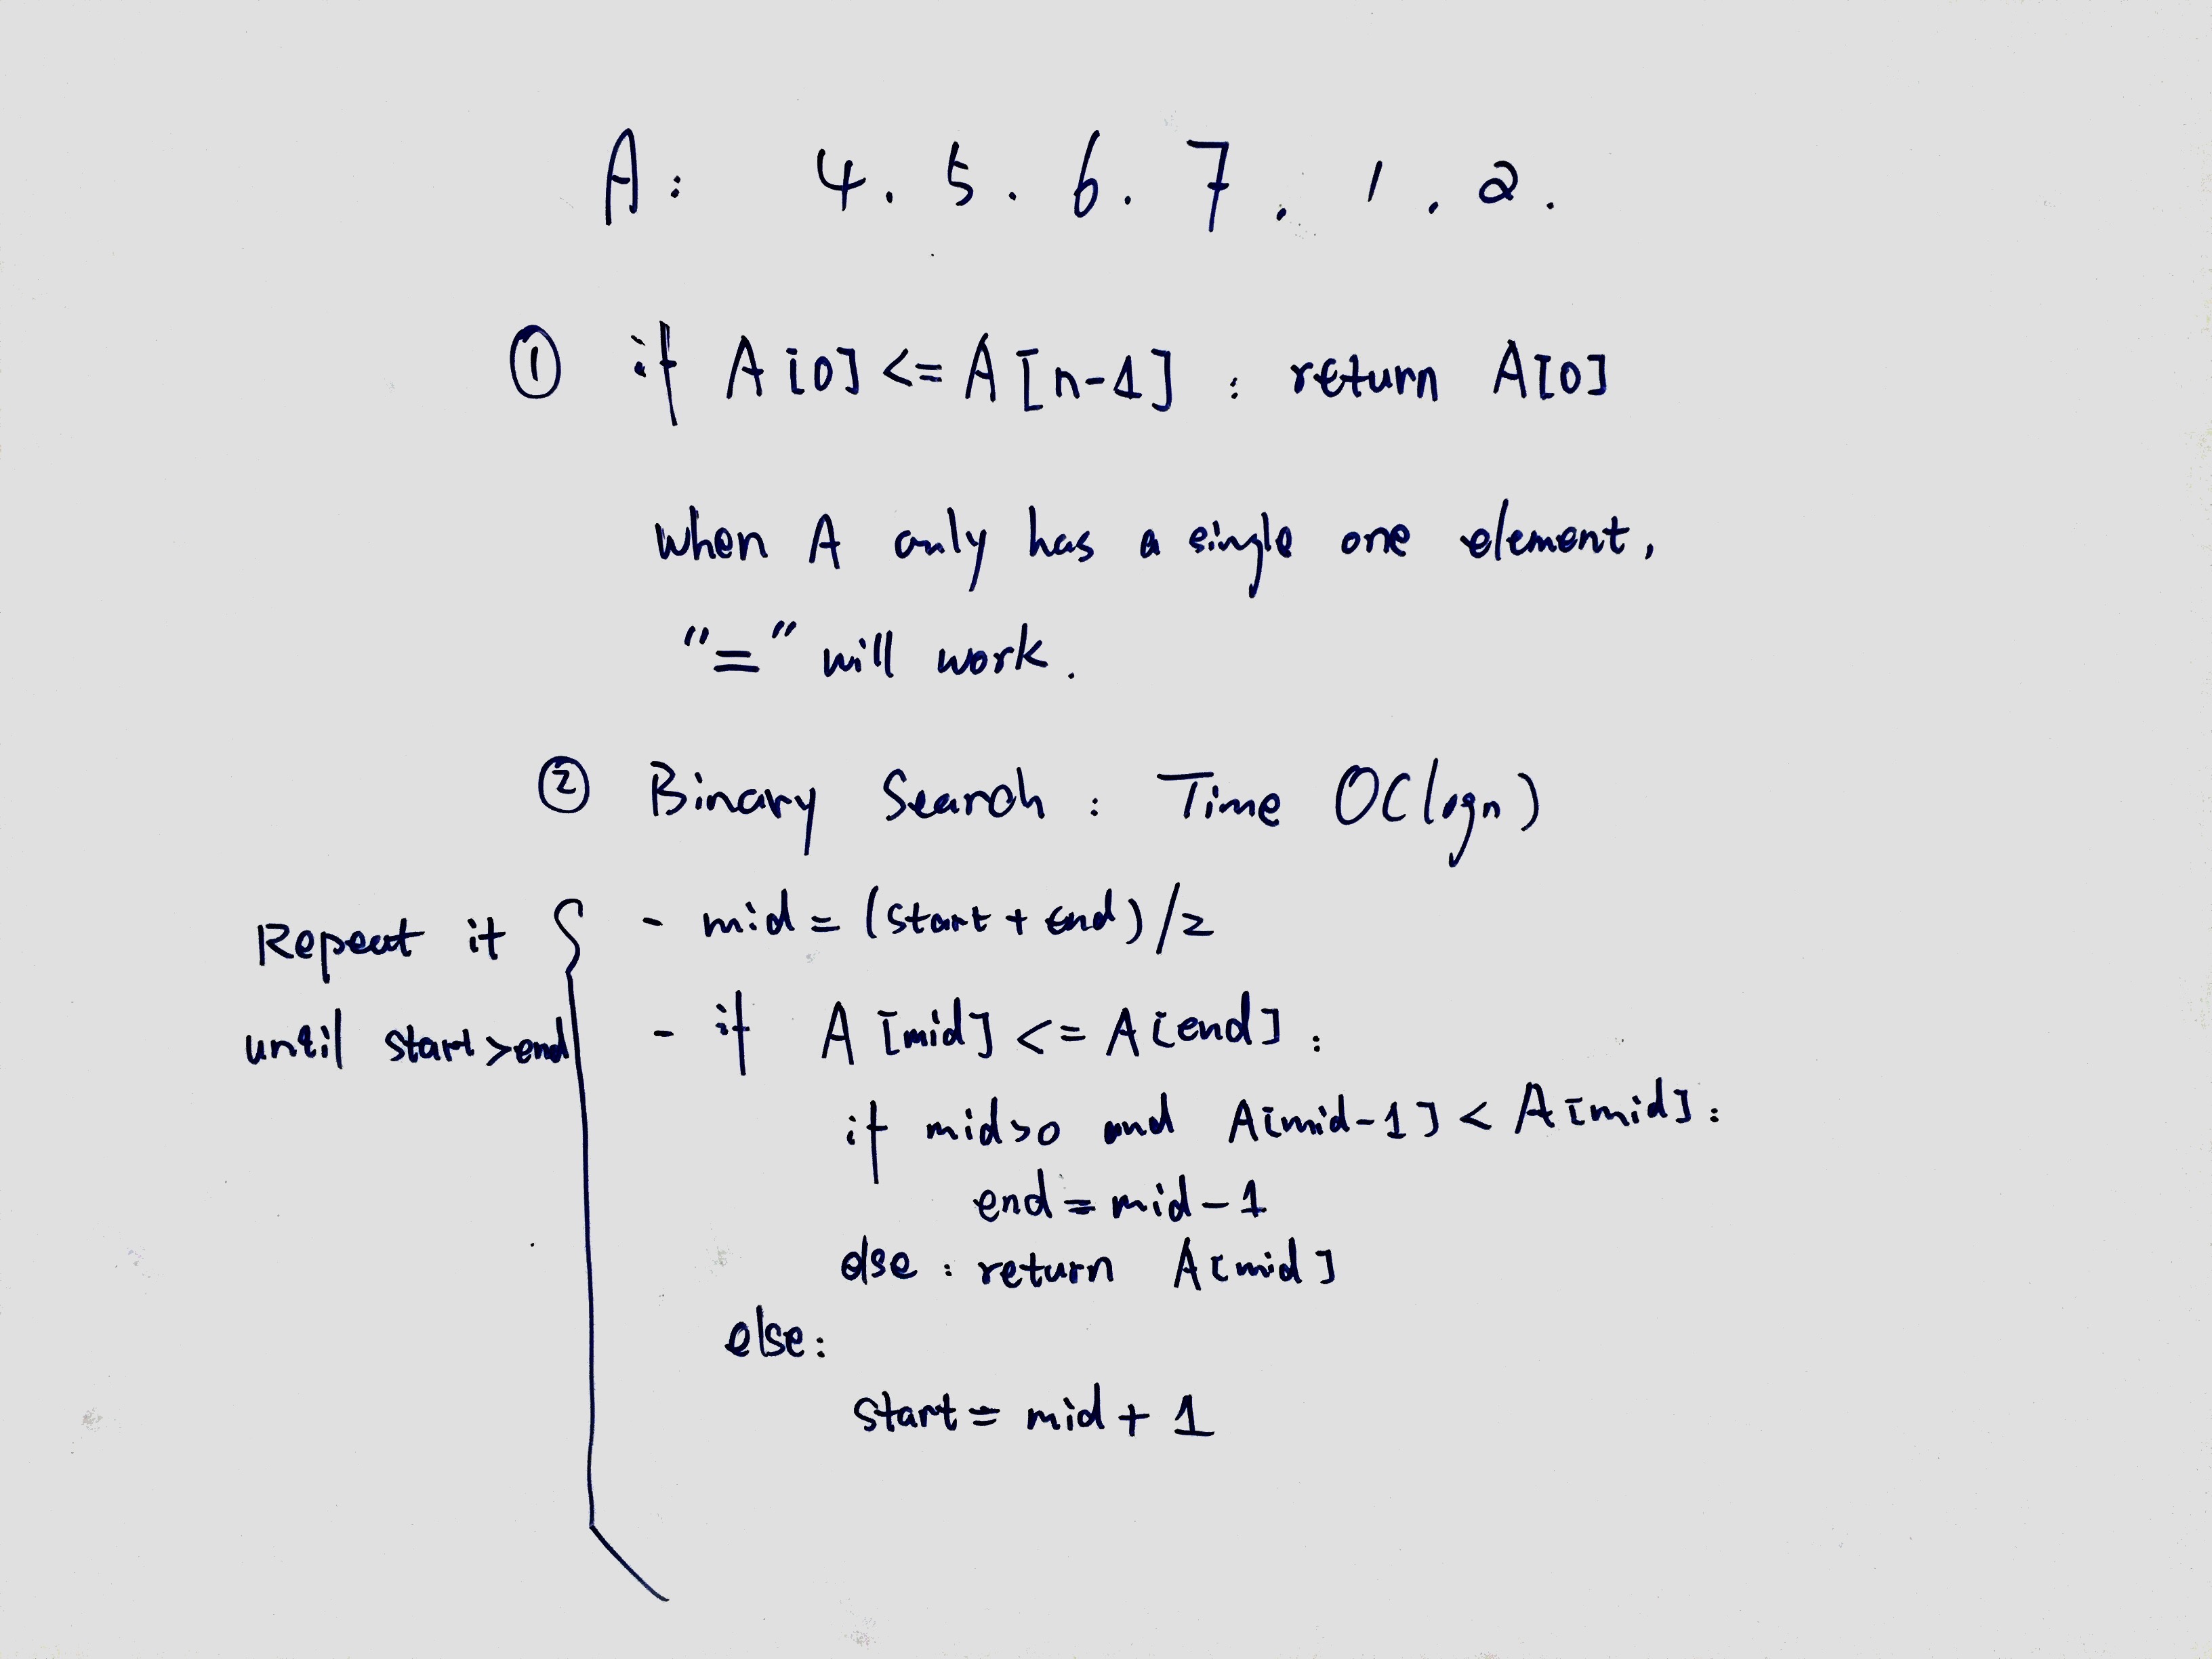 A: 4. 5. 6. 7. 1, 2.
① if A[0] <= A[n-1] : return A[0]
when A only has a single one element,
"=" will work.
② Binary Search : Time O(logn)
- mid = (start + end)/2
Repeat it
until start>end
- if A[mid] <= A[end] :
if mid>0 and A[mid-1] < A[mid] :
end = mid-1
else : return A[mid]
else:
start = mid + 1